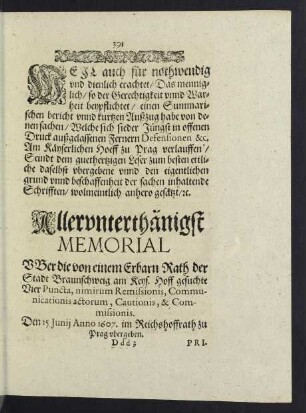 391
WEJL auch für nothwendig
vnd dienlich erachtet/ Das mennig-
lich/ so der Gerechtigkeit vnnd War-
heit beypflichtet/ einen Summari-
schen bericht vnnd kurtzen Außzug habe von de-
nen sachen/ Welche sich sieder Jüngst in offenen
Druck außgelassenen Fernern Defensionen &c.
Am Käyserlichen Hoeff zu Prag verlauffen/
Seindt dem guethertzigen Leser zum besten ettli-
che daselbst vbergebene vnnd den eigentlichen
grund vnnd beschaffenheit der sachen inhaltende
Schrifften/ wolmeintlich anhero gesätzt/ꝛc.
Allervnterthänigst
MEMORIAL
VBer die von einem Erbarn Rath der
Stadt Braunschweig am Keys. Hoff gesuchte
Vier Puncta, nimirum Remissionis, Commu-
nicationis actorum, Cautionis, & Com-
missionis.
Den 15 Junij Anno 1607. im Reichshoffrath zu
Prag vbergeben.
Ddd 3 PRI-